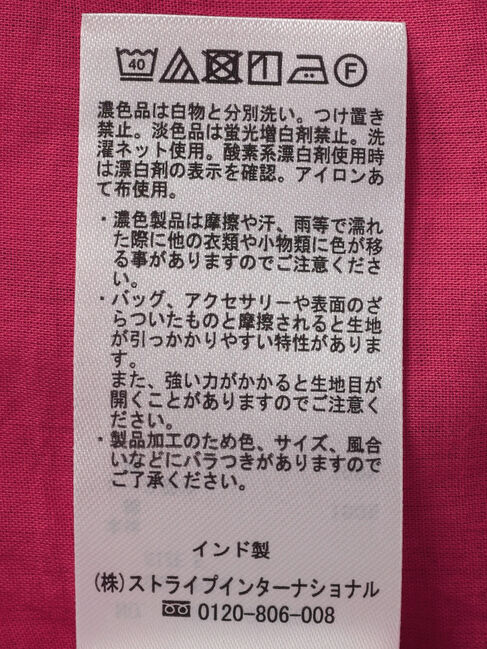 40 F
濃色品は白物と分別洗い。つけ置き
禁止。淡色品は蛍光増白剤禁止。洗
濯ネット使用。酸素系漂白剤使用時
は漂白剤の表示を確認。アイロンあ
て布使用。
・濃色製品は摩擦や汗、雨等で濡れ
た際に他の衣類や小物類に色が移
る事がありますのでご注意くださ
い。
・バッグ、アクセサリーや表面のざ
らついたものと摩擦されると生地
が引っかかりやすい特性がありま
す。
また、強い力がかかると生地目が
開くことがありますのでご注意く
ださい。
・製品加工のため色、サイズ、風合
いなどにバラつきがありますので
ご了承ください。
インド製
(株)ストライプインターナショナル
0120-806-008